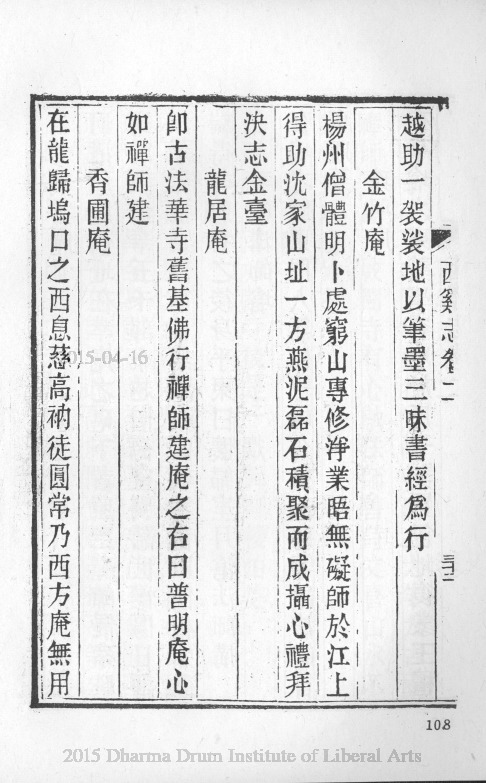 越助一袈裟地以筆墨三昧書經爲行
金竹庵
楊州僧體明卜處窮山專修淨業晤無礙師於江上
得助沈家山址一方燕泥磊石積聚而成攝心禮拜
決志金臺
龍居庵
卽古法華寺舊基佛行禪師建庵之右曰普明庵心
如禪師建
香圃庵
在龍歸塢口之西息慈高衲徒圓常乃西方庵無用
西谿志卷二
三十三
108
2015-04-16
2015 Dharma Drum Institute of Liberal Arts